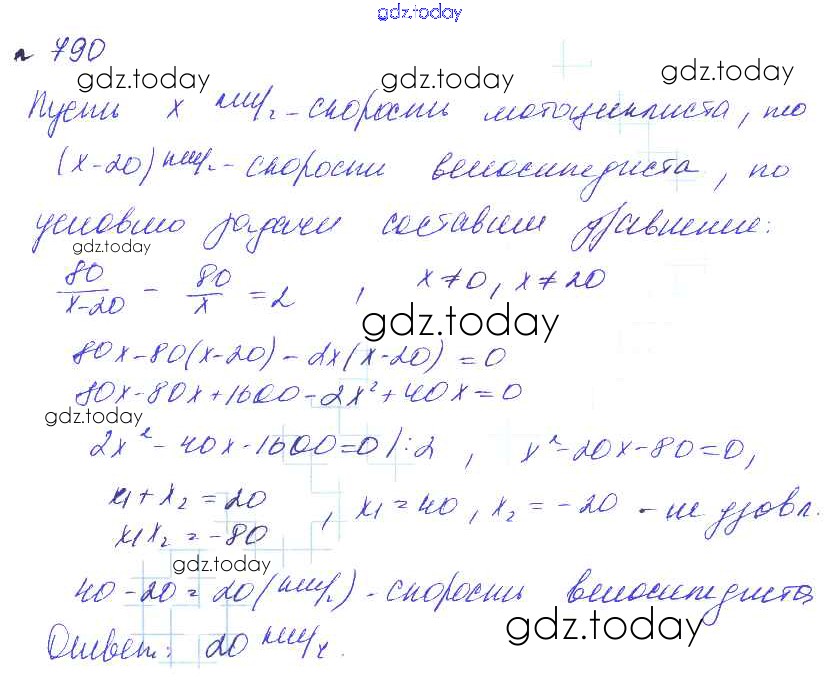 gdz.today
№ 790
gdz.today gdz.today gdz.today
Пусть x км/ч - скорость мотоциклиста, то
(x-20) км/ч - скорость велосипедиста, по
условию задачи составим уравнение:
gdz.today
80/(x-20) - 80/x = 2, x≠0, x≠20
gdz.today
80x-80(x-20)-2x(x-20)=0
80x-80x+1600-2x²+40x=0
gdz.today
2x²-40x-1600=0/:2, x²-20x-80=0,
x₁+x₂=20
x₁x₂=-80, x₁=40, x₂=-20 - не удовл.
gdz.today
40-20=20(км/ч) - скорость велосипедиста
gdz.today
Ответ: 20 км/ч.